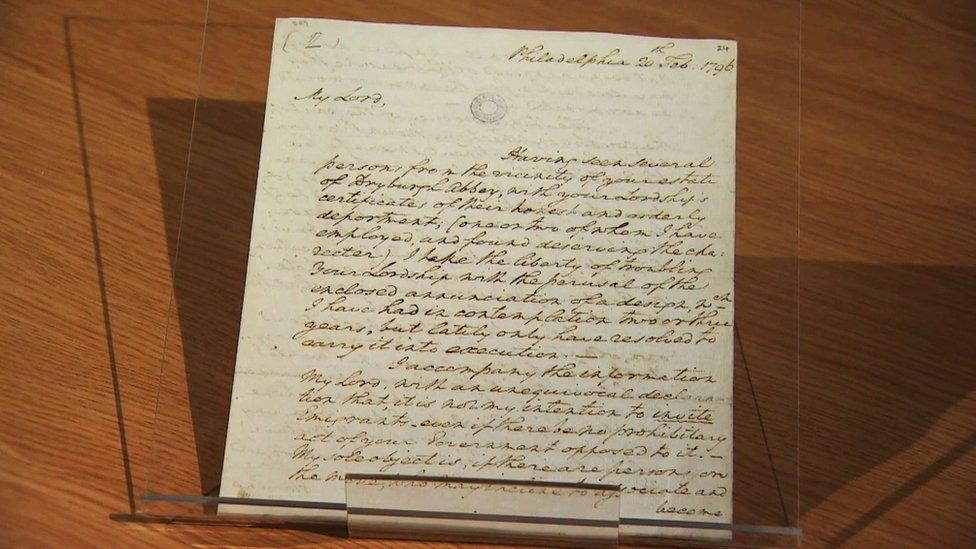 (2)
24
Philadelphia 20th Feb: 1796
My Lord,
Having seen several
persons from the vicinity of your estate
of Dryburgh Abbey, with your Lordship's
certificates of their honest and orderly
deportment; (one or two of whom I have
employed, and found deserving the cha:
racter) I take the liberty of troubling
Your Lordship with the perusal of the
enclosed annunciation of a design wch
I have had in contemplation two or three
years, but lately only have resolved to
carry it into execution. —
I accompany the information
My Lord, with an unequivocal declara
tion that, it is not my intention to invite
Emigrants—even if there be no prohibitary
act of your Government opposed to it. —
My sole object is, if there are persons on
the move, who may incline to associate and
become